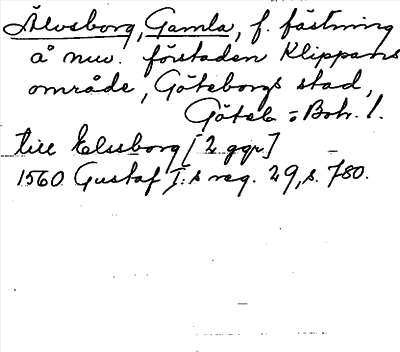 Älvsborg, Gamla, f. fästning
å nuv. förstaden Klippans
område, Göteborgs stad,
Göteb. o. Boh. l.
till Elssborg [2 ggr]
1560 Gustaf I:s reg. 29, s. 780.